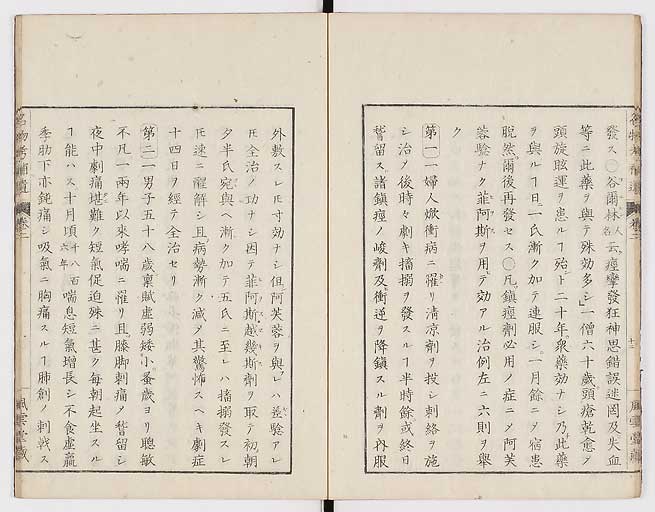 發ス○谷爾林人名云痙攣發狂神思錯誤迷罔及失血
等ニ此藥ヲ與テ殊効多シ」一僧六十歲頭瘡乾愈ノ
頭旋眩運ヲ患ルヿ殆ト二十年衆藥効ナシ乃此藥
ヲ與ルヿ日一氏漸ク加テ連服シ一月餘ニメ宿患
脫然爾後再發セス○凡鎮痙劑必用ノ症ニメ阿芙
蓉驗ナク菲阿斯ヲ用テ効アル治例左ニ六則ヲ舉
ク
第一一婦人歘衝病ニ罹リ清凉劑ヲ投シ刺絡ヲ施
シ治ノ後時々劇キ搐搦ヲ發スルヿ半時餘或終日
稽留ス諸鎮痙ノ峻劑及衝逆ヲ降鎮スル劑ヲ內服
外敷スレ𪜈寸効ナシ但阿芙蓉ヲ與レハ效驗アレ
𪜈全治ノ功ナシ因テ菲阿斯越幾斯劑ヲ取テ初朝
夕半氏宛與ヘ漸ク加テ五氏ニ至レハ搐搦發スレ
𪜈速ニ醒解シ且病勢漸ク減メ其驚怖スヘキ劇症
十四日ヲ經テ全治セリ
第二一男子五十八歲稟賦虛弱矮小蚤歲ヨリ聰敏
不凡一兩年以來哮喘ニ罹リ且膝脚刺痛メ稽留シ
夜中劇痛堪難ク短氣促迫殊ニ甚ク每朝起坐スル
ヿ能ハス十月頃千八百六年喘息短氣增長シ不食虛羸
季肋下亦鈍痛シ吸氣ニ胸痛スルヿ肺創ノ刺戟ス
名物考補遺
卷二
十三
風雲堂藏
名物考補遺
卷二
風雲堂藏